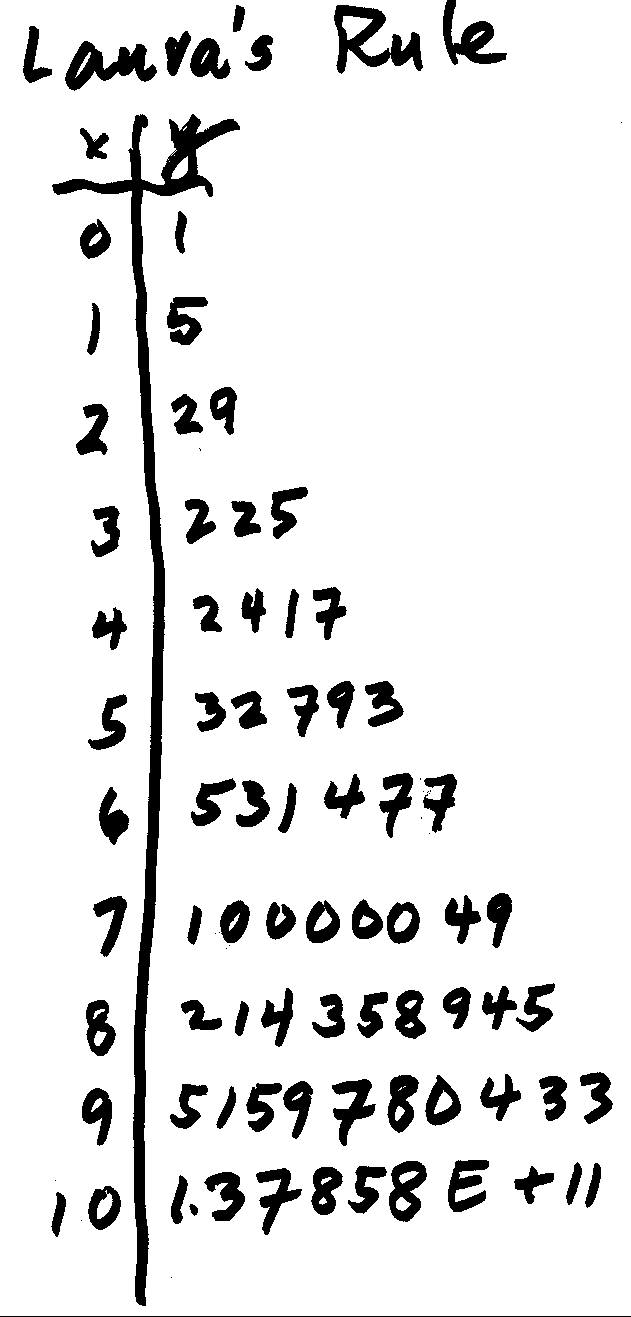 Laura's Rule
x y
0 1
1 5
2 29
3 225
4 2417
5 32793
6 531477
7 10000049
8 214358945
9 5159780433
10 1.37858E+11